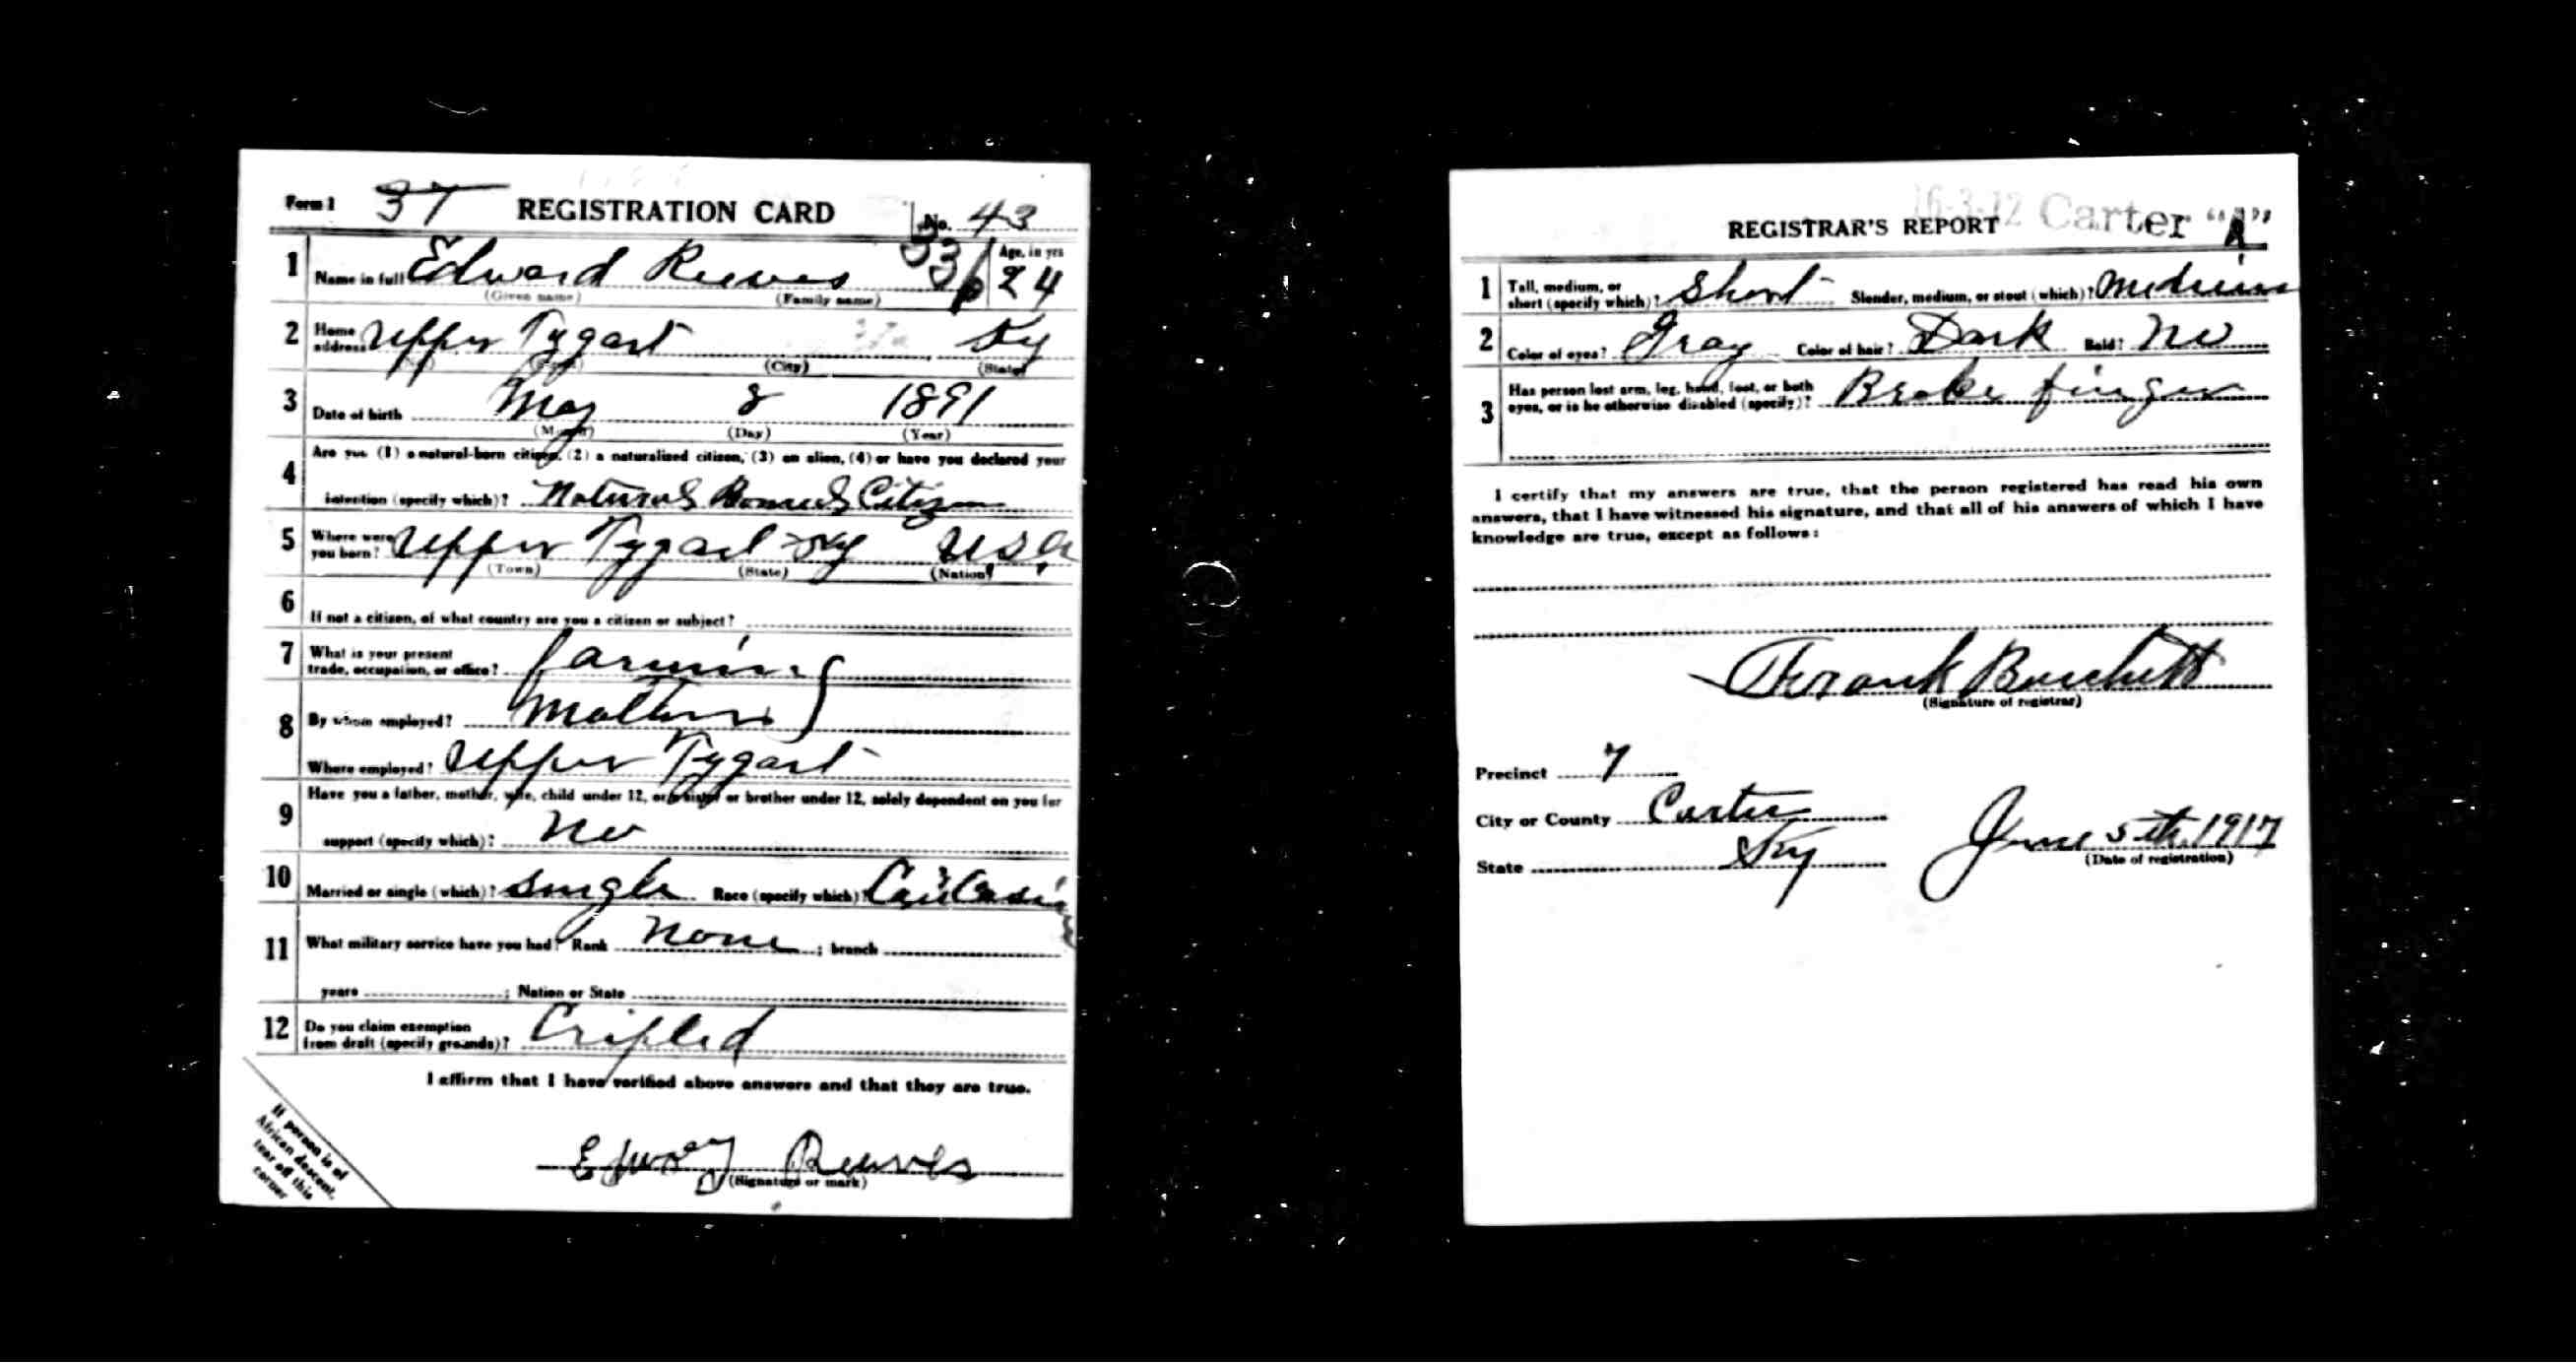 Form 1 37 REGISTRATION CARD No. 43
336
1 Name in full Edward Reeves Age, in yrs 24
(Given name) (Family name)
2 Home address Upper Tygart Ky
(City) (State)
3 Date of birth May 8 1891
(Month) (Day) (Year)
4 Are you (1) a natural-born citizen, (2) a naturalized citizen, (3) an alien, (4) or have you declared your
intention (specify which)? Natural Borned Citizen
5 Where were you born? Upper Tygart Ky U.S.A
(Town) (State) (Nation)
6 If not a citizen, of what country are you a citizen or subject?
7 What is your present trade, occupation, or office? farming
8 By whom employed? Mother
Where employed? Upper Tygart
9 Have you a father, mother, wife, child under 12, or a sister or brother under 12, solely dependent on you for
support (specify which)? No
10 Married or single (which)? Single Race (specify which)? Caucasian
11 What military service have you had? Rank None ; branch
years ; Nation or State
12 Do you claim exemption from draft (specify grounds)? Cripled
I affirm that I have verified above answers and that they are true.
Reeves
(Signature or mark)
If person is of
African descent,
tear off this
corner
16-3-12 Carter "A"
REGISTRAR'S REPORT
1 Tall, medium, or short (specify which)? Short Slender, medium, or stout (which)? Medium
2 Color of eyes? Gray Color of hair? Dark Bald? No
3 Has person lost arm, leg, hand, foot, or both eyes, or is he otherwise disabled (specify)? Broke finger
I certify that my answers are true, that the person registered has read his own
answers, that I have witnessed his signature, and that all of his answers of which I have
knowledge are true, except as follows:
Frank Burchett
(Signature of registrar)
Precinct 7
City or County Carter
State Ky June 5th 1917
(Date of registration)